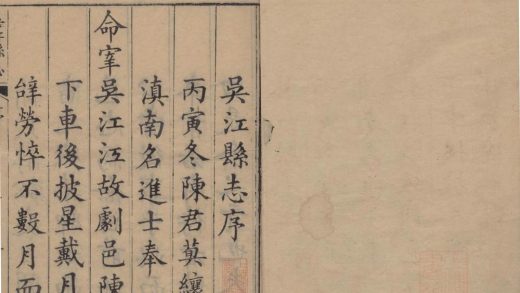 吳江縣志序
丙寅冬陳君莫纕
滇南名進士奉
命宰吳江江故劇邑陳
下車後披星戴月
辝勞悴不數月而